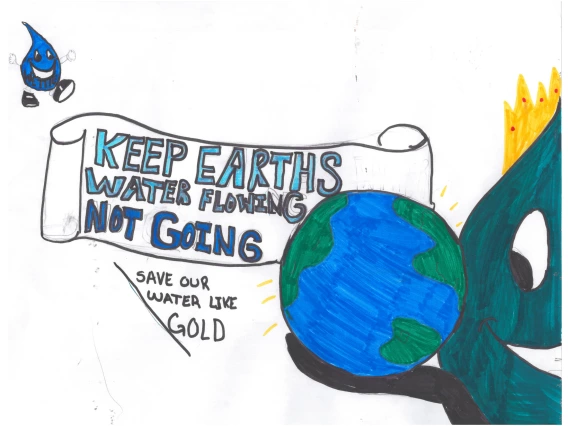 KEEP EARTHS
WATER FLOWING
NOT GOING
SAVE OUR
WATER LIKE
GOLD